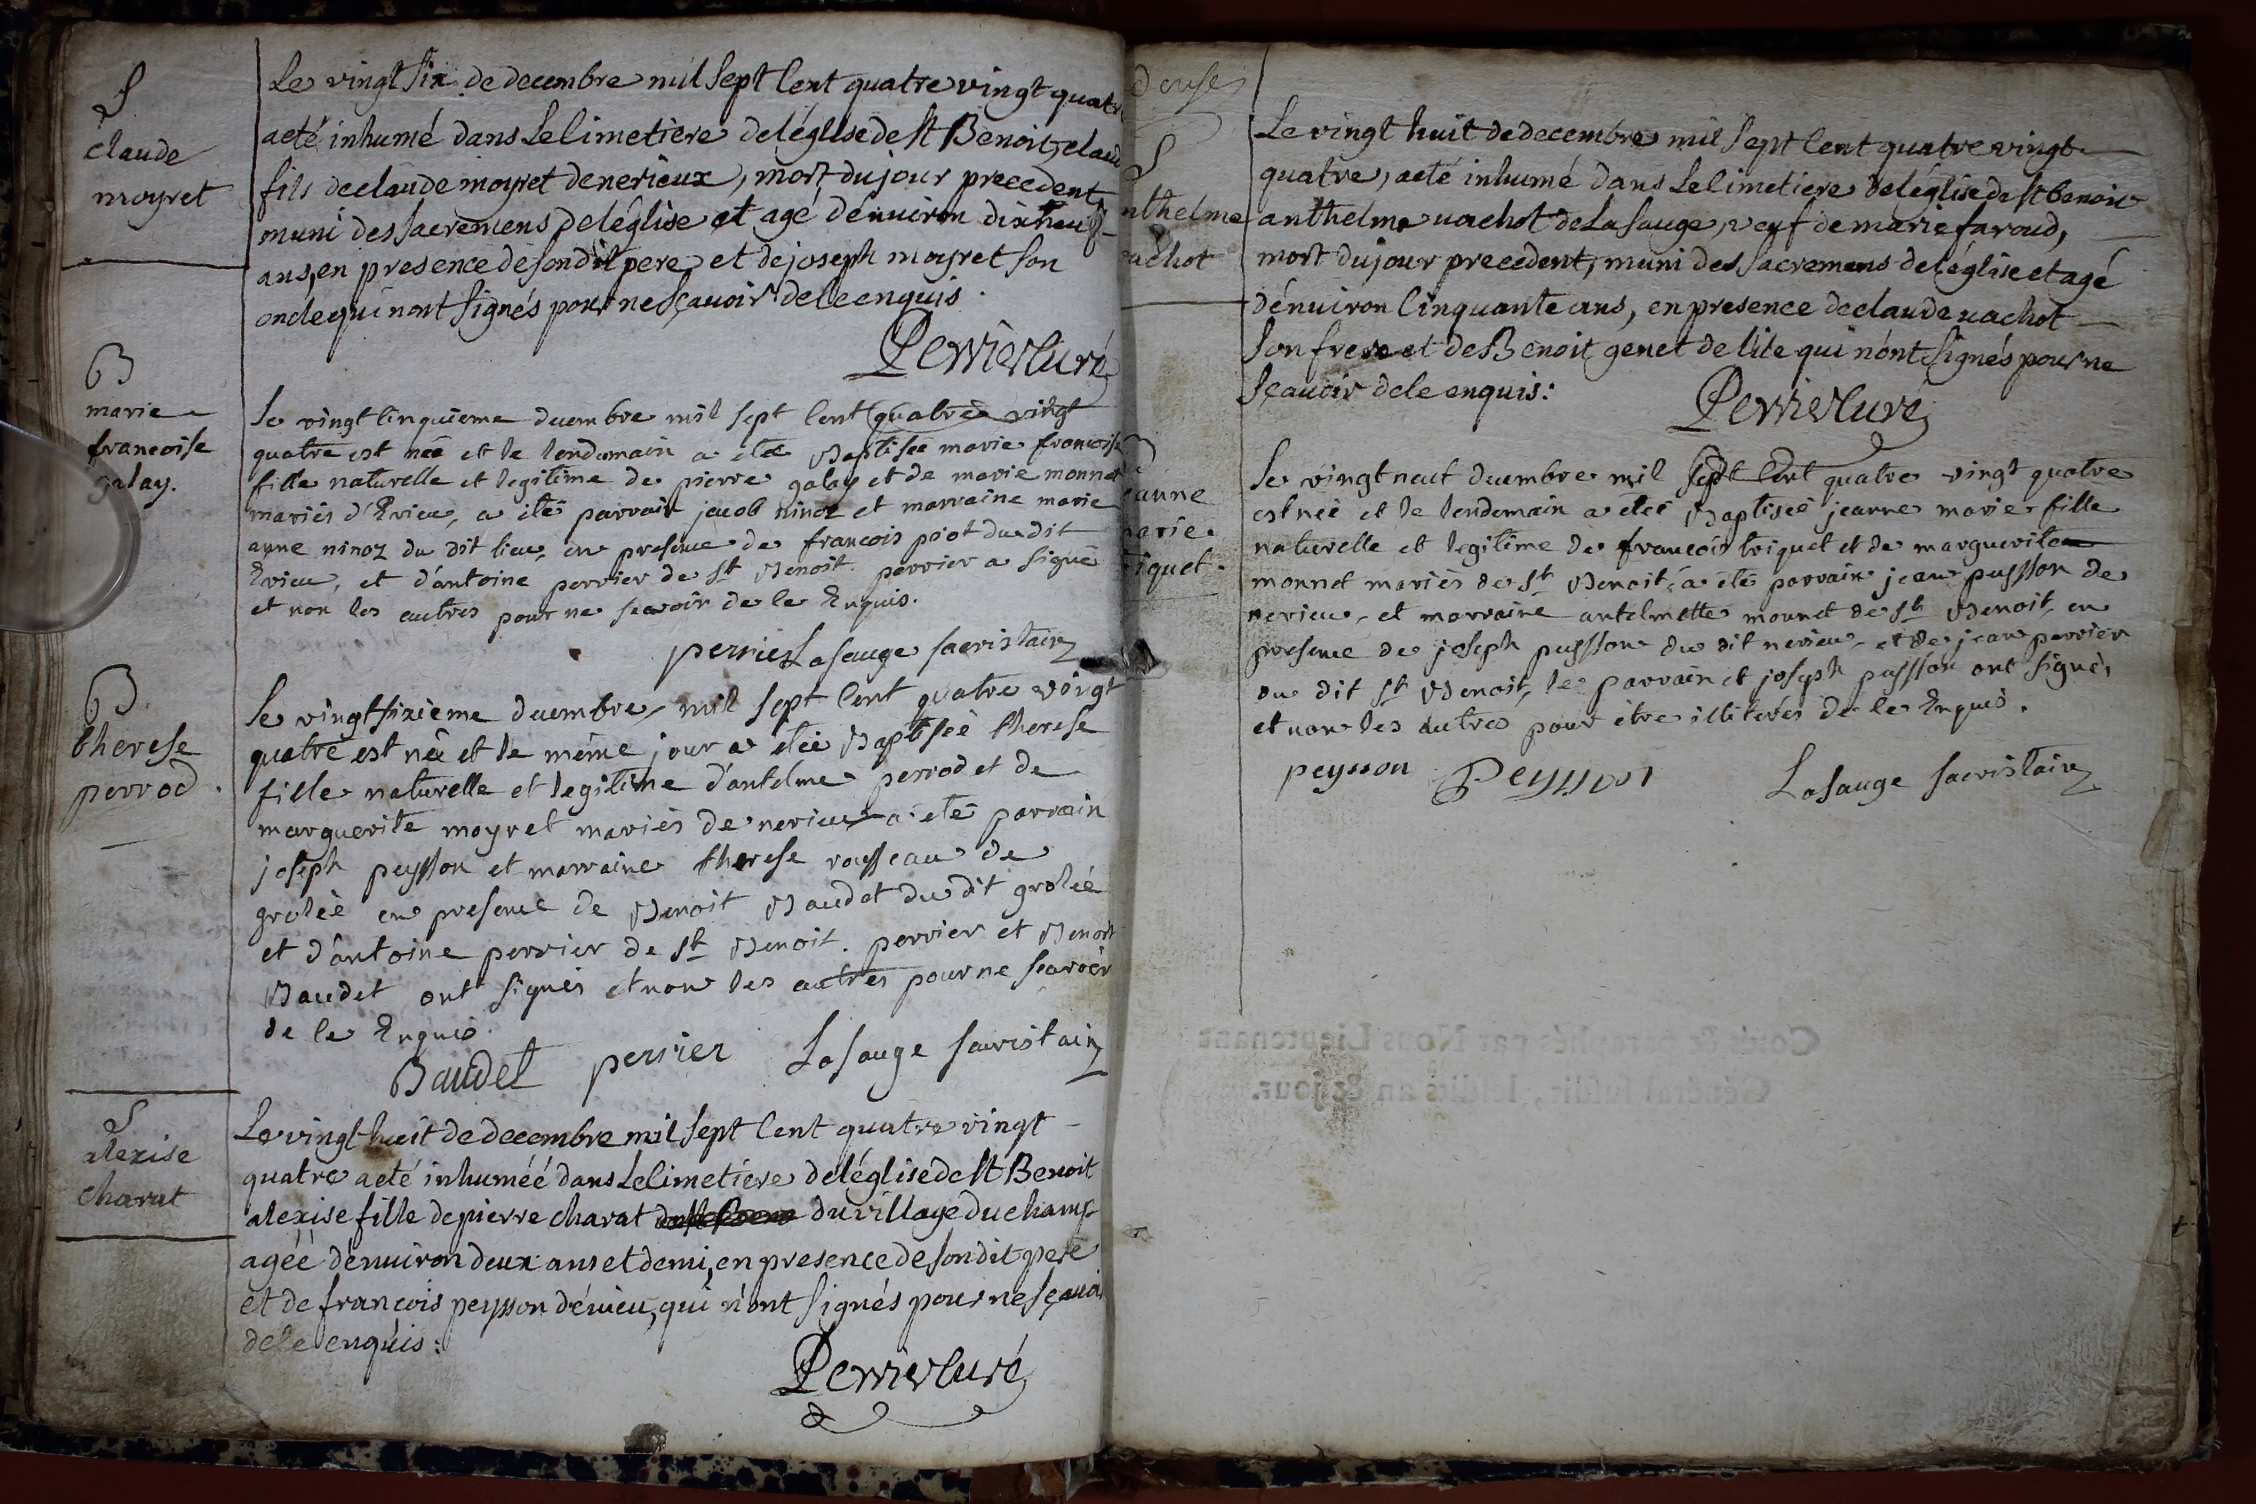 S
claude
moyret
Le vingt six de decembre mil sept cent quatre vingt quatre
a eté inhumé dans le cimetiere de léglise de st Benoit, claude
fils de claude moyret de nerieux, mort du jour precedent,
muni des sacremens de léglise et agé dénuiron dix neuf
ans, en presence de son dit pere, et de joseph moyret son
oncle qui nont signés pour ne sçauoir de ce enquis.
Perrier curé
B
marie
francoise
galay.
le vingt cinquieme decembre mil sept cent quatre vingt
quatre est née et le lendemain a etée Baptisée marie francoise
fille naturelle et legitime de pierre galay et de marie monnet
mariés d'Evieu, a été parrain jacob ninoz et marraine marie
anne ninoz du dit lieu, en presence de francois piot du dit
Evieu, et d'antoine perrier de st Benoit. perrier a signé
et non les autres pour ne scavoir de ce Enquis.
perrier Lasauge sacristain
B
therese
perrod.
le vingt sixieme decembre mil sept cent quatre vingt
quatre est née et le même jour a etée Baptisée therese
fille naturelle et legitime d'antelme perrod et de
marguerite moyret mariés de nerieu a été parrain
joseph peysson et marraine therese rousseau de
grolée en presence de Benoit Baudet du dit grolée
et d'antoine perrier de st Benoit. perrier et Benoit
Baudet ont signés et non les autres pour ne scavoir
de ce Enquis
Baudet perrier Lasauge sacristain
S
alexise
charat
Le vingt huit de decembre mil sept cent quatre vingt
quatre a eté inhuméé dans le cimetiere de léglise de st Benoit
alexise fille de pierre charat du village du champ
agéé dénuiron deux ans et demi, en presence de son dit pere
et de francois peysson déuieu, qui n'ont signés pour ne sçauoir
de ce enquis:
Perrier curé
S
nthelme
uachot
Le vingt huit de decembre mil sept cent quatre vingt
quatre, a eté inhumé dans le cimetiere de léglise de st benoit
anthelme uachot de La sauge, veuf de marie faroud,
mort du jour precedent, muni des sacremens de léglise et agé
dénuiron cinquante ans, en presence de claude uachot
son frere et de Benoit genet de cite qui nónt signés pour ne
sçauoir de ce enquis:
Perrier curé
eanne
marie
riquet.
le vingt neuf decembre mil sept cent quatre vingt quatre
est née et le lendemain a eteé Baptiseé jeanne marie fille
naturelle et legitime de francois triquet et de marguerite
monnet mariés de st Benoit, a été parrain jean peysson de
nerieu, et marraine antelmette monnet de st Benoit, en
presence de joseph peysson du dit nerieu, et de jean perrier
du dit st Benoit, le parrain et joseph peysson ont signé,
et non les autres pour être illiterés de ce Enquis.
peysson Peysson Lasauge sacristain